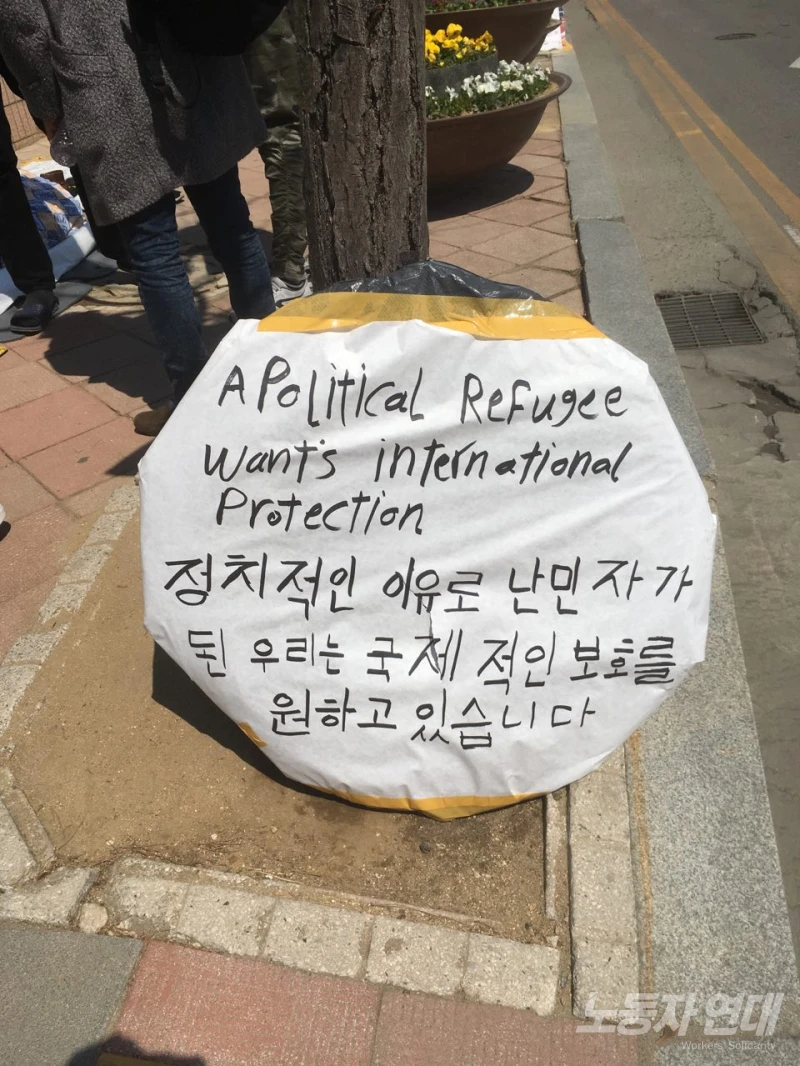 A Political Refugee
want's international
Protection
정치적인 이유로 난민자가
된 우리는 국제적인 보호를
원하고 있습니다
노동자 연대
Workers' Solidarity